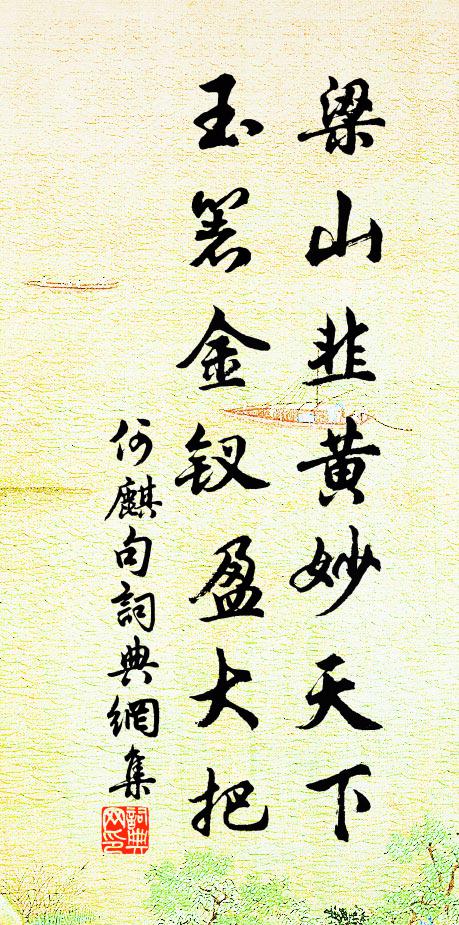 梁山韭黄妙天下
玉箸金钗盈大把
何麒句詞典網集
詞典
网印